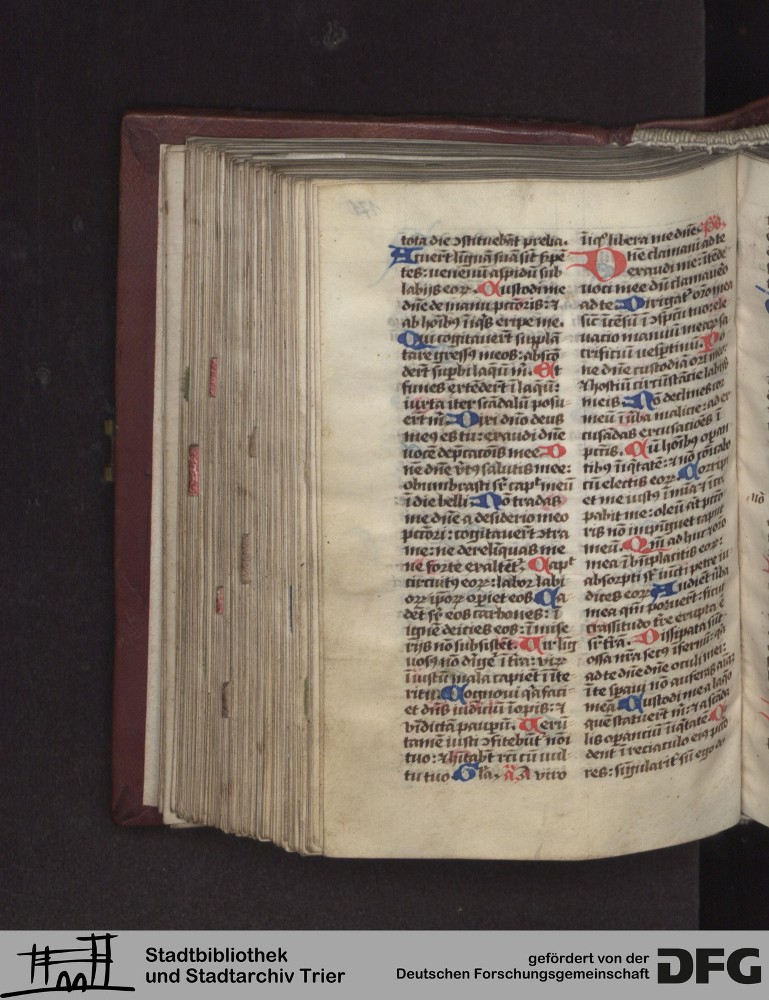 tota die ɔstituebāt prelia.
Acuerūt līguā suā sic̄ ẜpē
tes: uenenū aspidū sub
labijs eoꝝ. Custodi me
dn̄e de manu pctōris: ⁊
ab hōib⁹ īiqͥs eripe me.
Qui cogitauerūt supplā
tare gressꝰ meos: abscō
derūt supbi laqueū m̄. Et
funes extēderūt ī laqueū:
iuxta iter scādalū posu
erūt m̄. Dixi dn̄o deus
me⁹ es tu: exaudi dn̄e
uocē dep̄catōis mee. D
ne dn̄e v̄t⁹ salutis mee:
obumbrasti sr̄ capᵗ meū
ī die belli. Nō tradas
me dn̄e a desiderio meo
pctōri: cogitauer̄t ɔtra
me: ne derelīquas me
ne forte exaltēt̄. Capᵗ
circuit⁹ eoꝝ: labor labi
oꝝ ip̄oꝝ opiet eos. Ca
dēt sr̄ eos carbones: ī
ignē deicies eos: ī mise
rijs nō subsistēt. Vir lig
uos⁹ nō dirige͛t̄ ī tr̄a: virꝝ
īiustū mala capiēt ī īte
ritu. Cognoui qͥa faci
et dn̄s iudiciū īopis: ⁊
vīdictā pauꝑū. Verū
tamē iusti ɔfitebūt̄ noī
tuo: ⁊ hītabūt rc̄ti cū uul
tu tuo. Gla. a viro
īiqͦ libera me dn̄e. ps̄
Dn̄e clamaui ad te
exaudi me: ītēde
uoci mee dū clamauēo
ad te. Dirigat̄ orō mea
sic̄ īcēsū ī ɔspcū tuo: ele
uatio manuū meaꝝ sa
crificiū uesptinū. Po
ne dn̄e custodiā ori meo:
⁊ hostiū circūstācie labijs
meis. Nō declines cor
meū ī ūba malicie: ad ex
cusādas excusatōes ī
pctīs. Cū hōib⁹ opan
tib⁹ īiqͥtatē: ⁊ nō ɔīcabo
cū electis eoꝝ. Corripi
et me iust⁹ ī mīa ⁊ īcre
pabit me: oleū āt pctō
ris nō īpīguet caput
meū. Qm̄ adhuc orō
mea ī bn̄placitis eoꝝ:
absorpti sr̄ iūcti petre iu
dices eoꝝ. Audiēt ūba
mea qm̄ potuer̄t: sicut
crassitudo tr̄e eruptā ē
sr̄ tr̄ā. Dissipata sūt
ossa nr̄a secꝰ īfernū: qͥa
ad te dn̄e dn̄e oculi mei:
ī te spaui nō auferas aīaʒ
meā. Custodi me a laqͦo
quē statuer̄t m̄: ⁊ a scāda
lis opantiū īiqͥtatē. Ca
dent ī reciaculo ei⁹ pctō
res: singularit̄ sū ego do
Stadtbibliothek
und Stadtarchiv Trier
gefördert von der
Deutschen Forschungsgemeinschaft
DFG